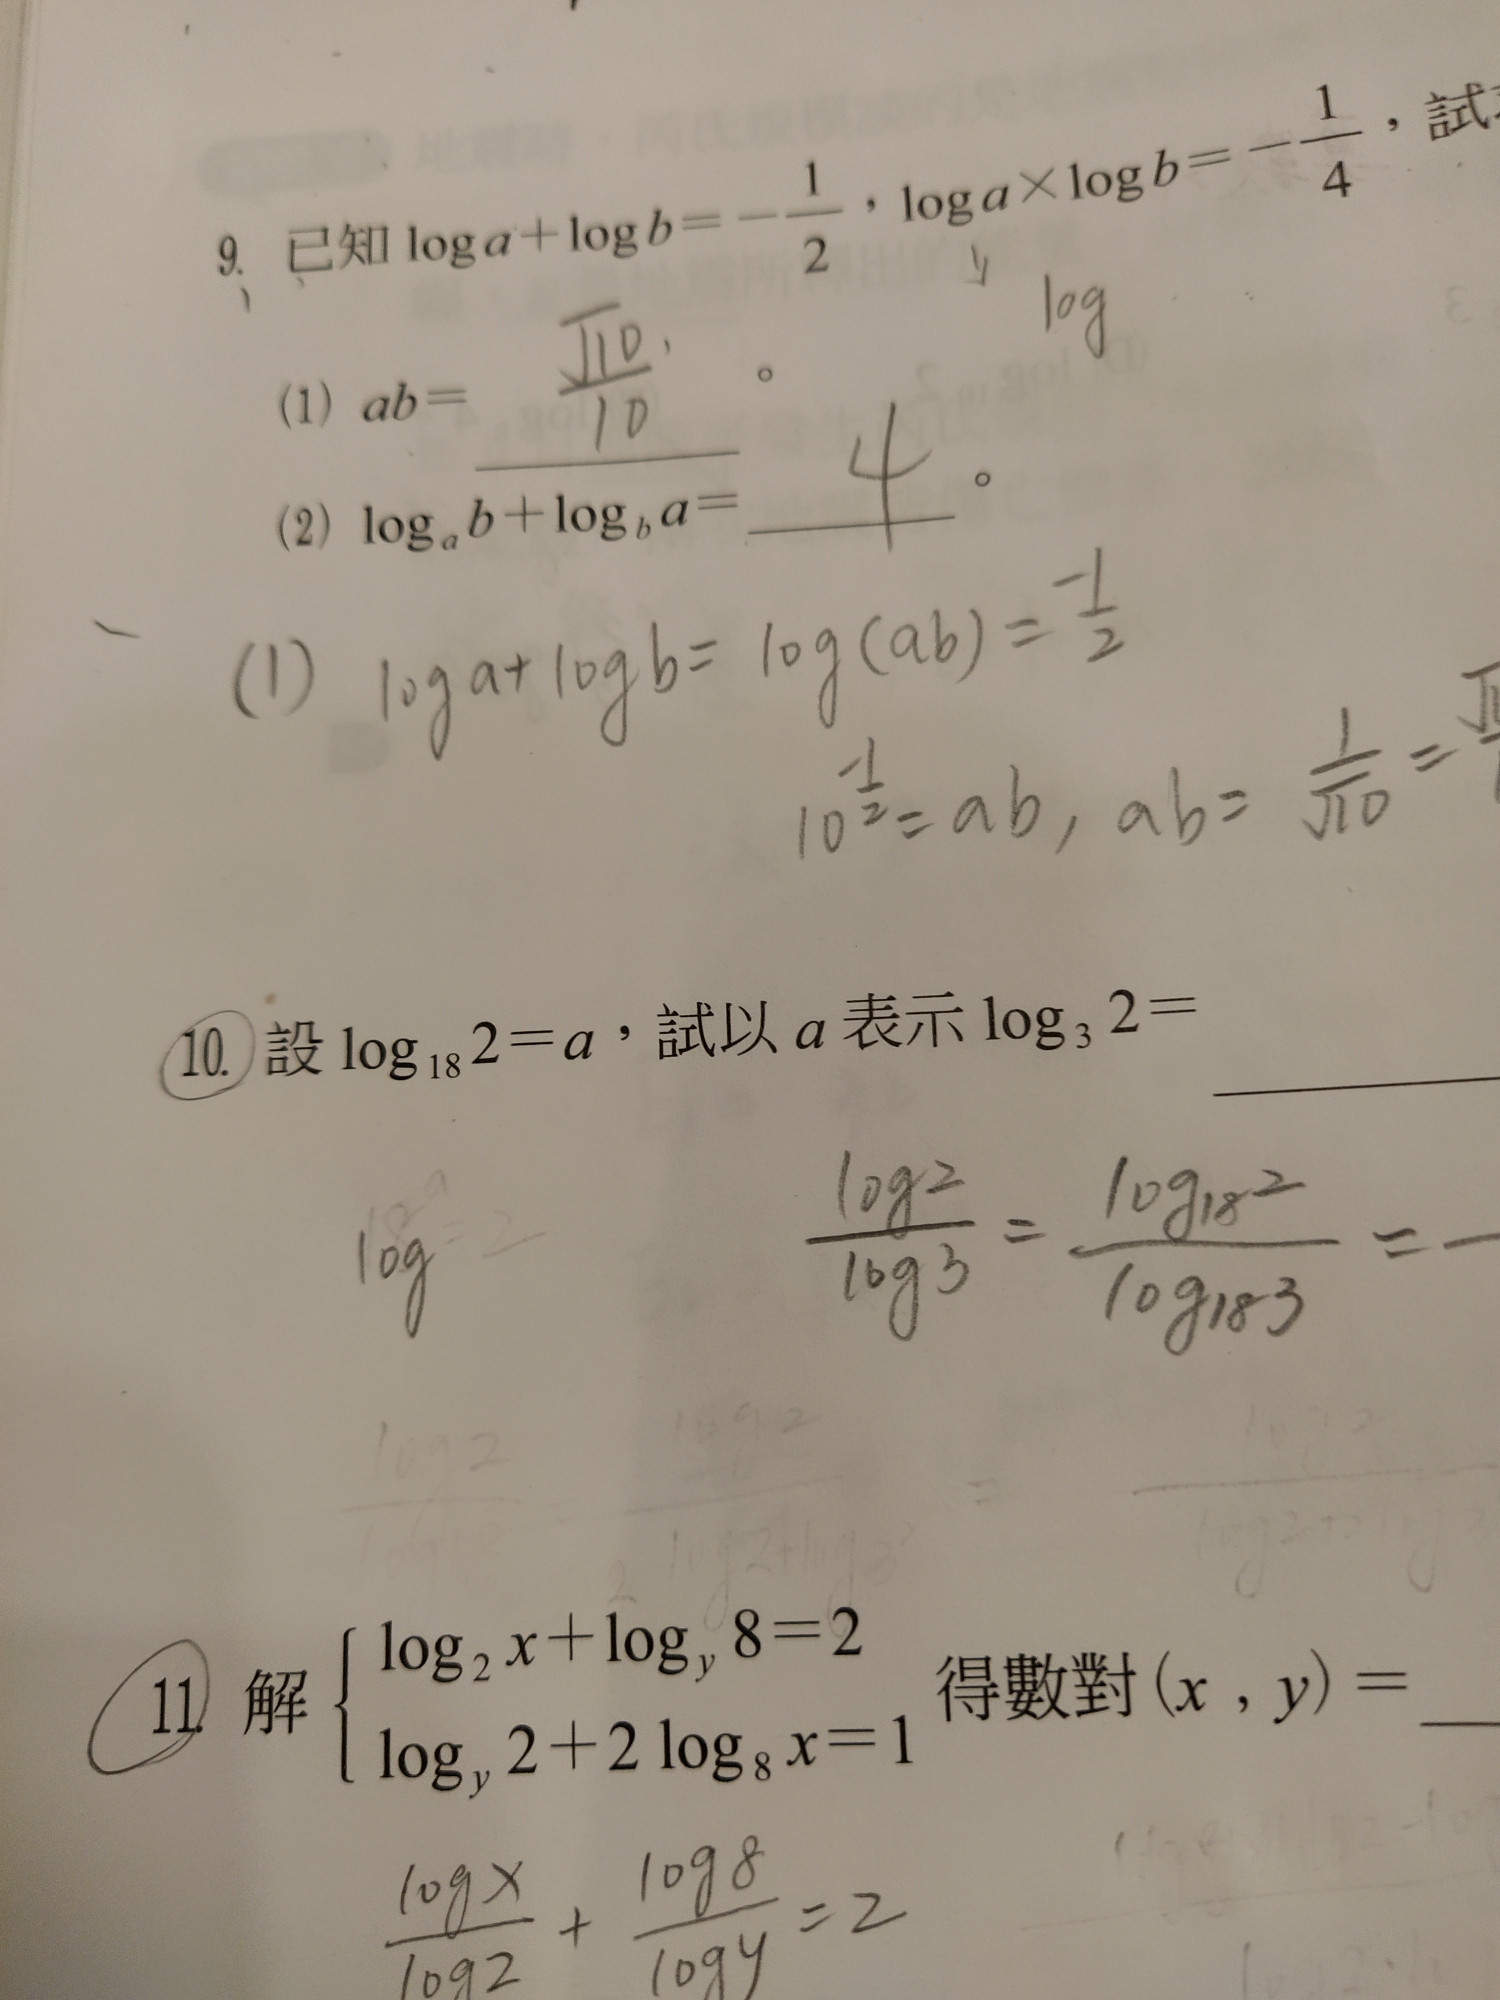 9. 已知 log a + log b = -1/2，log a × log b = -1/4，試
log
(1) ab = √10/10 。
(2) log_a b + log_b a = 4 。
(1) log a + log b = log (ab) = -1/2
10^(-1/2) = ab, ab = 1/√10 =
10. 設 log_18 2 = a，試以 a 表示 log_3 2 =
log log 2/log 3 = log_18 2/log_18 3 =
11. 解 { log_2 x + log_y 8 = 2
log_y 2 + 2 log_8 x = 1 得數對 (x , y) =
log x/log 2 + log 8/log y = 2